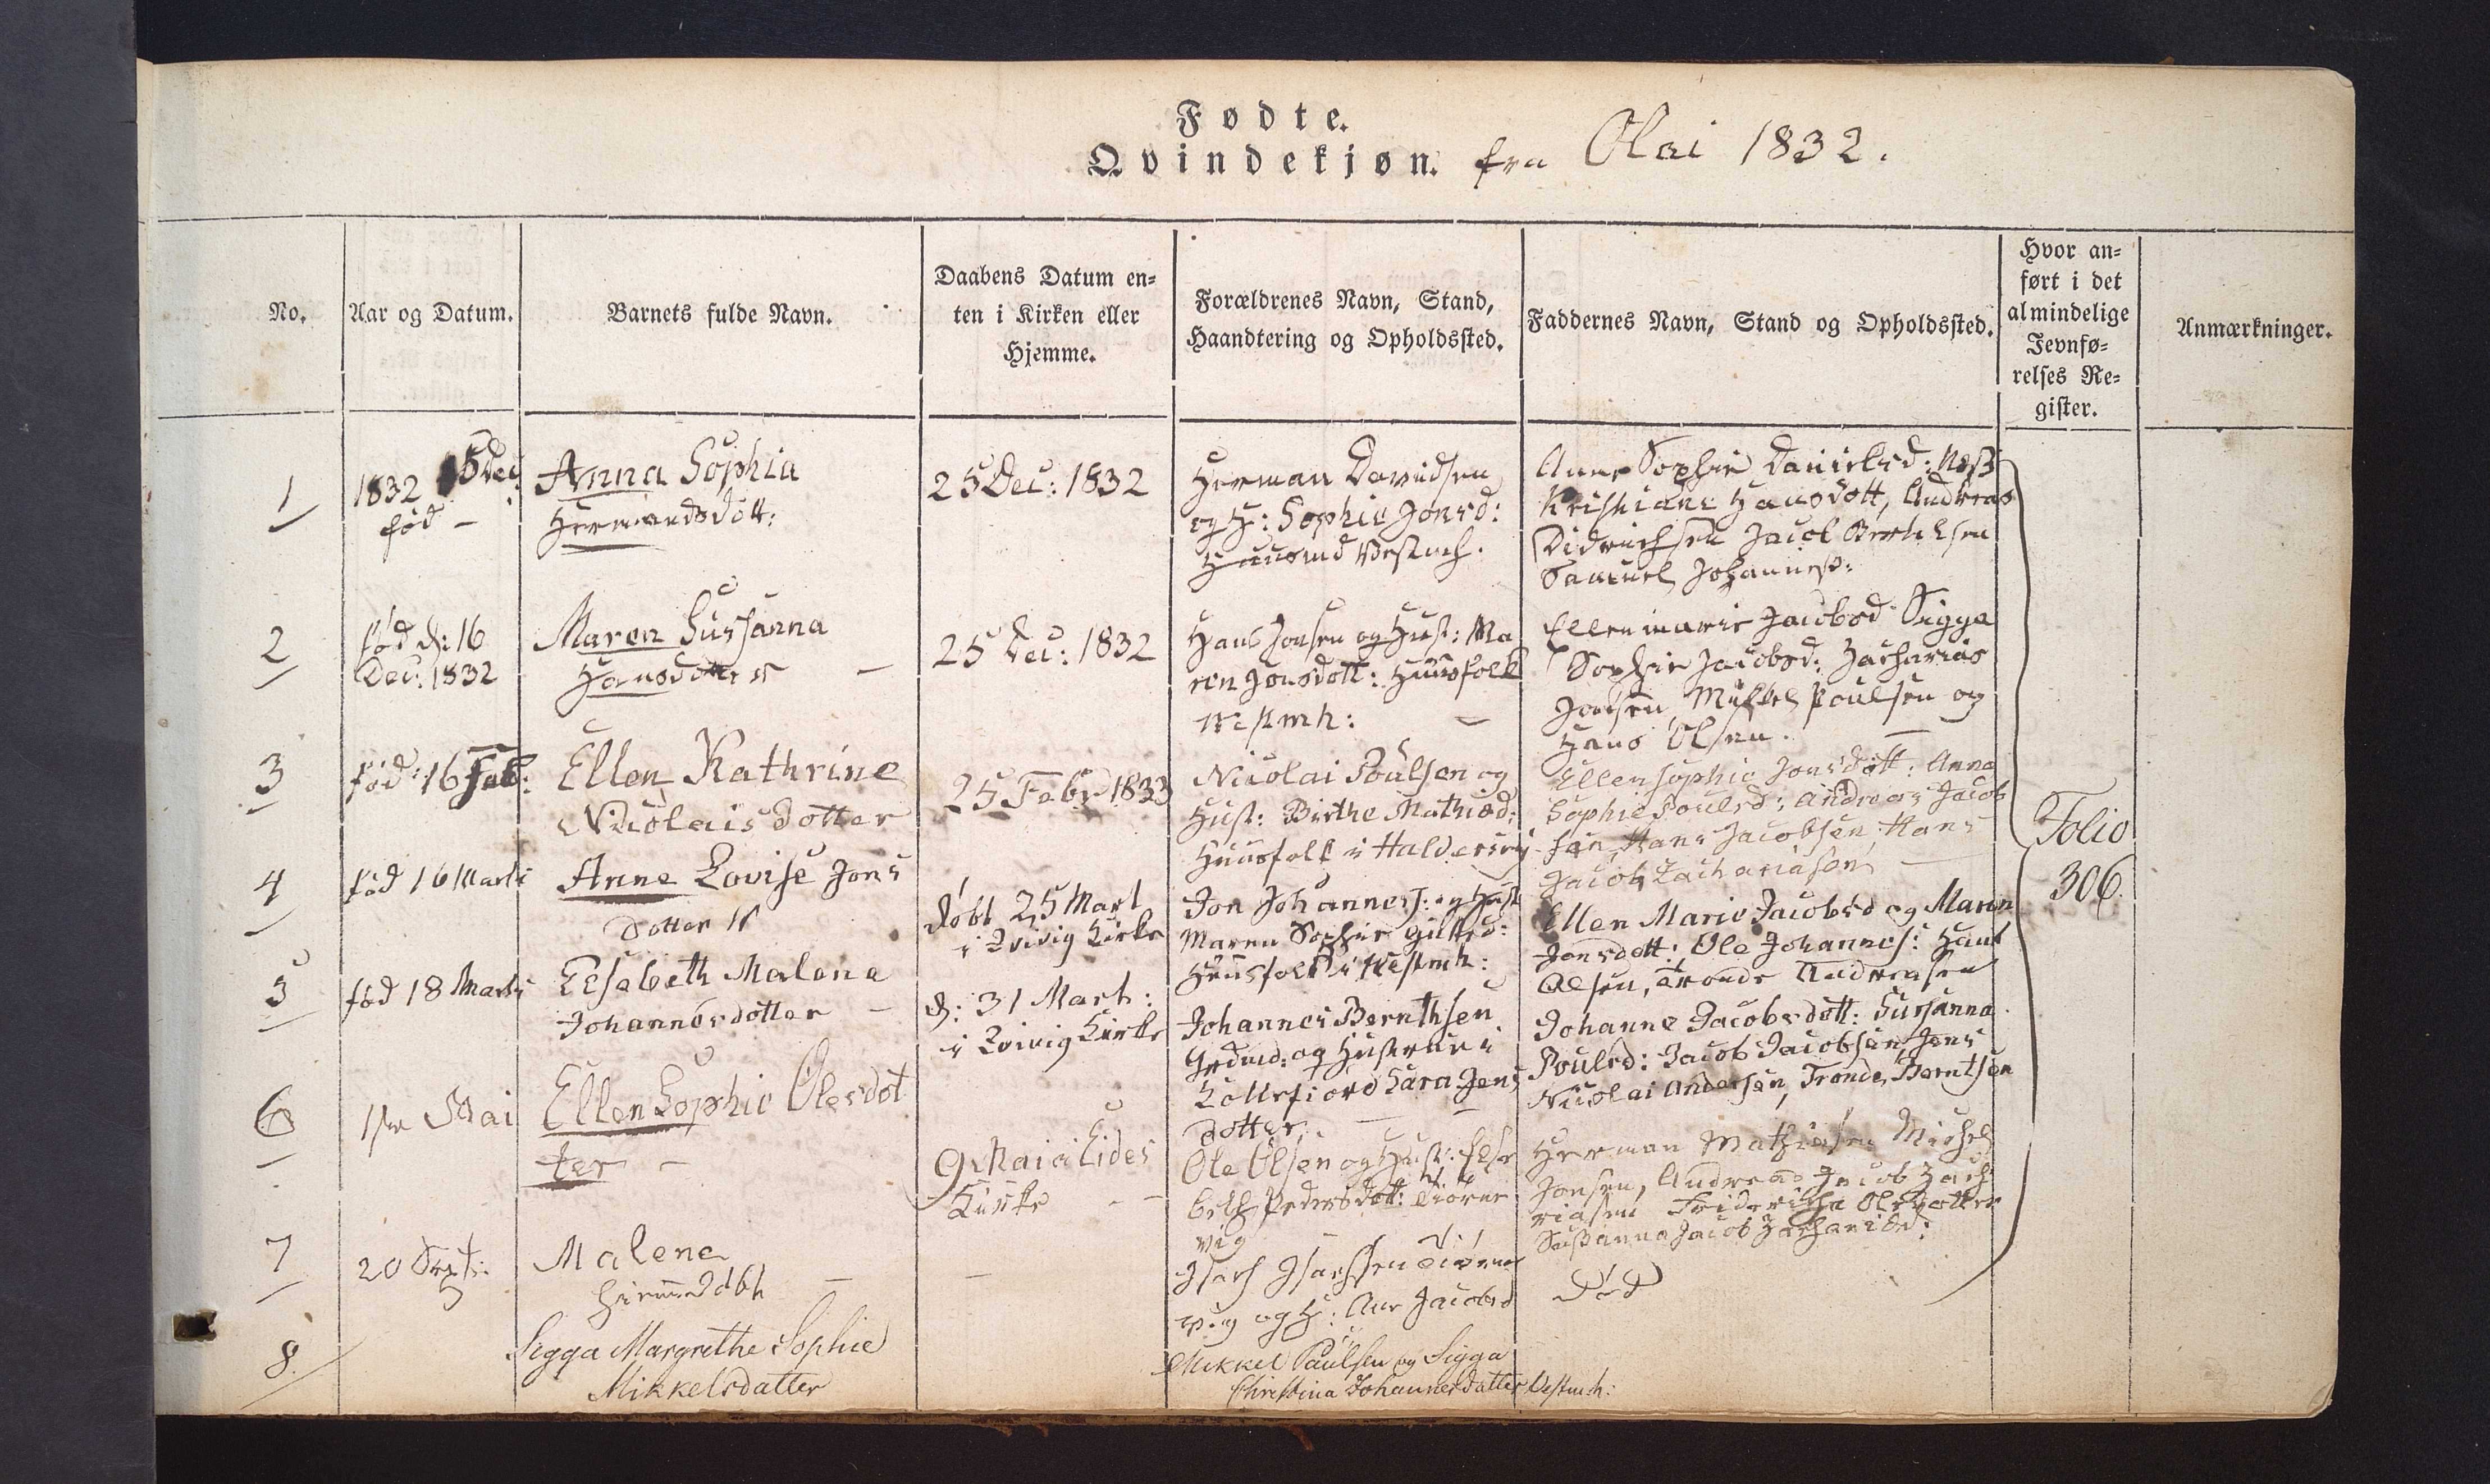 Fødte.
Qvindekjøn. fra Olai 1832.
No.
Aar og Datum.
Barnets fulde Navn.
Daabens Datum en-
ten i Kirken eller
Hjemme.
Forældrenes Navn, Stand,
Haandtering og Opholdssted.
Faddernes Navn, Stand og Opholdssted.
Hvor an-
ført i det
almindelige
Jevnfø-
relses Re-
gister.
Anmærkninger.
1
1832 5 Dec
fød -
Anna Sophia
Hermandsdott:
25 Dec: 1832
Herman Davidsen
og H: Sophie Jonsd:
Huusmd Vestmh.
Anne Sophie Danielsd:
Kristiane Hansdott, Andreas
Didrichsen Jacob Berthelsen
Samuel Johanness:
2
fød d: 16
Dec: 1832
Maren Susanna
Hansdotter -
25 Dec: 1832
Hans Jonsen og Hust: Ma
ren Jonsdott: Huusfolk
Vestmh: -
Ellen Marie Jacobsd Sigga
Sophie Jacobsd: Zacharias
Jonsen Mikkel Poulsen og
Hans Olsen. -
3
fød: 16 Feb:
Ellen Kathrine
Nicolaisdotter
25 Febr 1833
Nicolai Poulsen og
Hust: Birthe Mathiæd:
Huusfolk i Haldersvig
Ellen Sophie Jonsdott: Anna
Sophie Poulsd: Andreas Jacob
sen, Hans Jacobsen Hans
Jacob Zachariasen -
4
fød 16 Marti
Anne Lovise Jons
dotter
døbt 25 Mart
i Qvivig Kirke
Jon Johanness: og Hust
Maren Sophie
Huusfolk i Vestmh:
Ellen Marie Jacobsd og Maren
Jonsdott: Ole Johannes: Hans
Olsen, Tronde Andreasen
5
fød 18 Marti
Elsebeth Malene
Johannesdotter -
d: 31 Mart:
i Qvivig Kirke
Johannes Bernthsen
Grdmd: og Hustrue i
Kollefiord Sara Jens
dotter. -
Johanne Jacobsdott: Susanna
Poulsd: Jacob Jacobsen Jens
Nicolai Andersen, Tronde Berntsen
6
1ste Mai
Ellen Sophie Olesdot
ter -
9 Mai i Eides
Kirke - -
Ole Olsen og Hust: Else
beth Pedersdott: Tiørne
vig
Herman Mathiasen Michel
Jonsen, Andreas Jacob Zach
riasen Friderikha Olesdotter
Susanna Jacob Zachariæd:
7
20 Sept:
Malena
hiemmedøbt -
-
Isach Isachsen Tiørne
vig og H: Ane Jacobsd
Død
8.
Sigga Margrethe Sophie
Mikkelsdatter
Mikkel Paulsen og Sigga
Christina Johannesdatter Vestmh:
Folio
306.